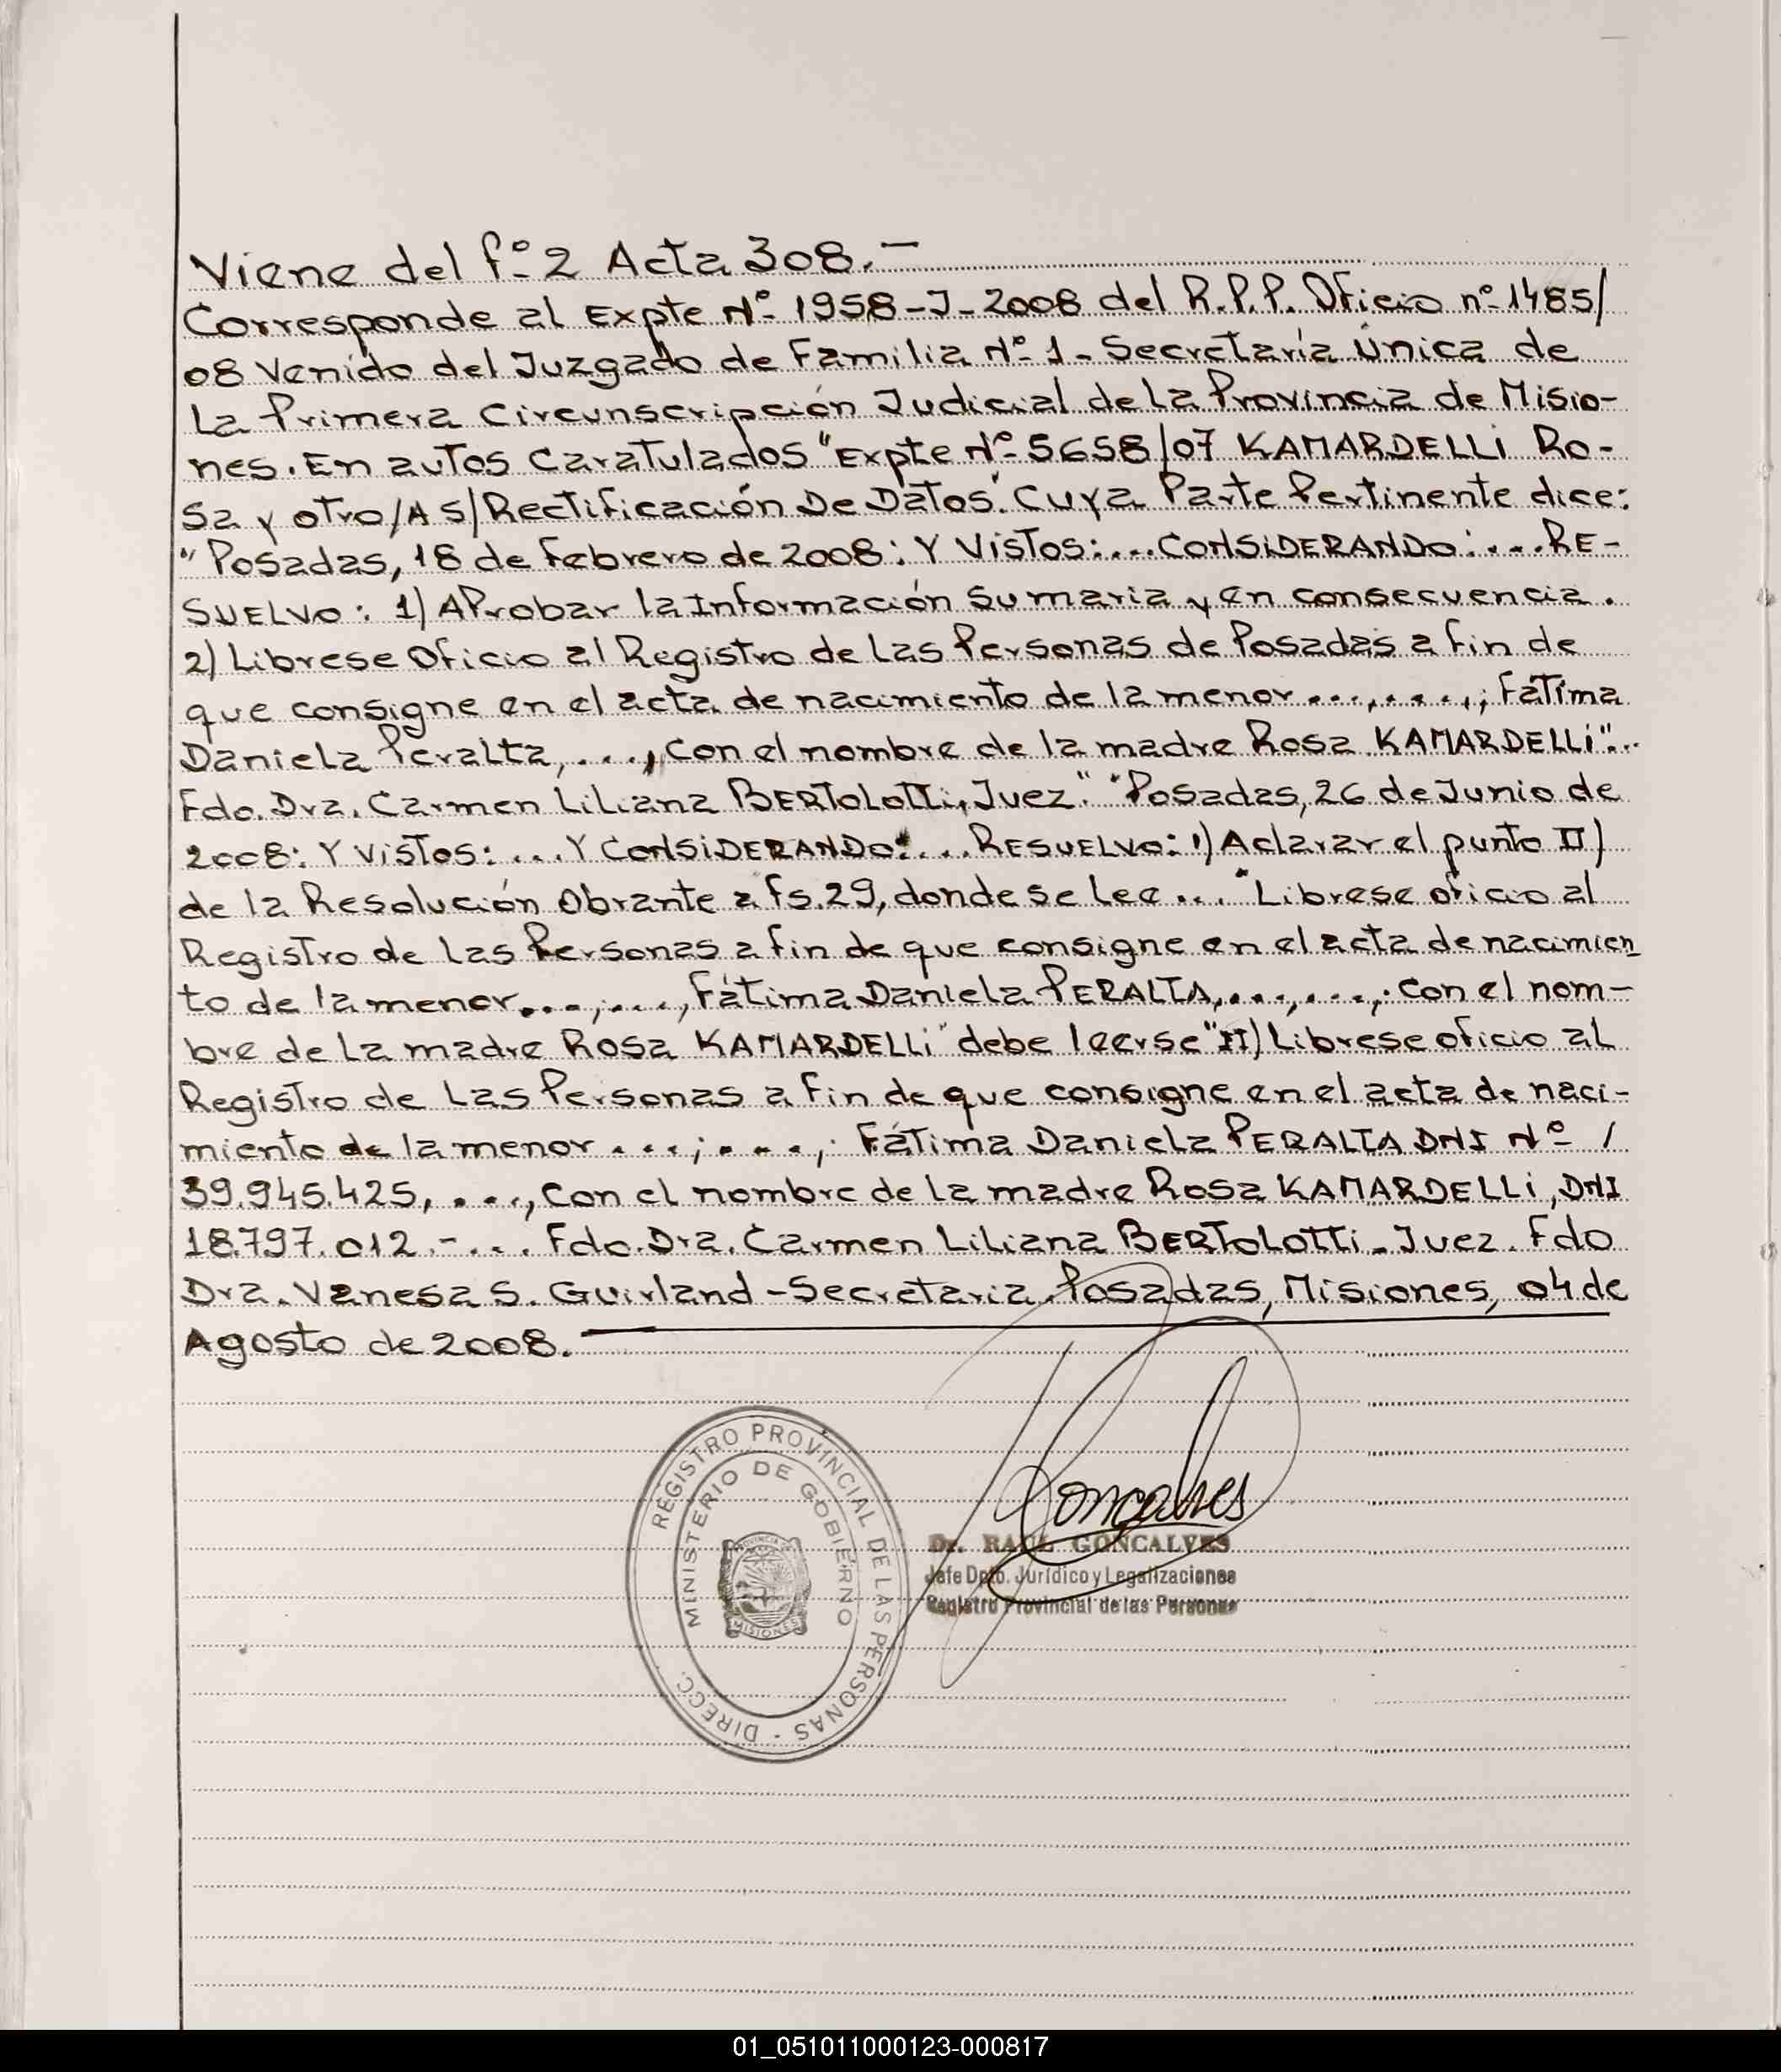 Viene del fº 2 Acta 308.-
Corresponde al Expte Nº 1958-J-2008 del R.P.P. Oficio nº 1485/
08 Venido del Juzgado de Familia Nº 1 - Secretaría Única de
La Primera Circunscripción Judicial de La Provincia de Misio-
nes. En autos Caratulados "Expte Nº 5658/07 KAMARDELLi Ro-
sa y otro/A S/Rectificación De Datos". Cuya Parte Pertinente dice:
"Posadas, 18 de Febrero de 2008: Y Vistos:... CONSiDERANDo:... RE-
SUELVo: 1) AProbar la Información Sumaria y en consecuencia.
2) Librese Oficio al Registro de Las Personas de Posadas a fin de
que consigne en el acta de nacimiento de la menor ...,...,; Fátima
Daniela Peralta, ..., Con el nombre de la madre Rosa KAMARDELLi"..
Fdo. Dra. Carmen Liliana BERToLoTTi, Juez." "Posadas, 26 de Junio de
2008: Y Vistos: ... Y CoNSiDERANDo:... RESUELVo: 1) Aclarar el punto II)
de la Resolución Obrante a fs. 29, donde se Lee ... "Librese oficio al
Registro de las Personas a fin de que consigne en el acta de nacimien
to de la menor...,...., Fátima Daniela PERALTA,...,...,. Con el nom-
bre de La madre Rosa KAMARDELLi" debe leerse "II) Librese oficio al
Registro de Las Personas a fin de que consigne en el acta de naci-
miento de la menor ...;...., Fátima Daniela PERALTA DNI Nº /
39.945.425, ..., Con el nombre de La madre Rosa KAMARDELLi, DNI
18.797.012.-... Fdo. Dra. Carmen Liliana BERToLoTTi - Juez. Fdo
Dra. Vanesa S. Guirland - Secretaria. Posadas, Misiones, 04 de
Agosto de 2008.
REGISTRO PROVINCIAL DE LAS PERSONAS - DIRECC.
MINISTERIO DE GOBIERNO
PROVINCIA DE
MISIONES
Goncalves
Dr. RAUL GONCALVES
Jefe Dpto. Jurídico y Legalizaciones
Registro Provincial de las Personas
01_051011000123-000817